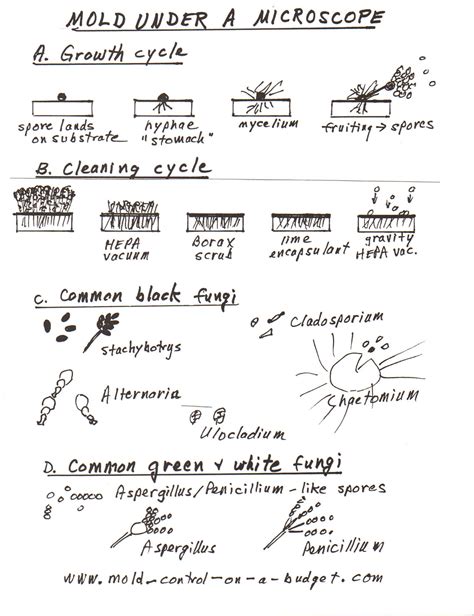 MOLD UNDER A MICROSCOPE
A. Growth cycle
spore lands on substrate
hyphae "stomach"
mycelium
fruiting → spores
B. Cleaning cycle
HEPA vacuum
Borax scrub
lime encapsulant
gravity HEPA vac.
C. Common black fungi
stachybotrys
Cladosporium
Alternaria
Ulocladium
Chaetomium
D. Common green & white fungi
Aspergillus/Penicillium-like spores
Aspergillus
Penicillium
www.mold-control-on-a-budget.com